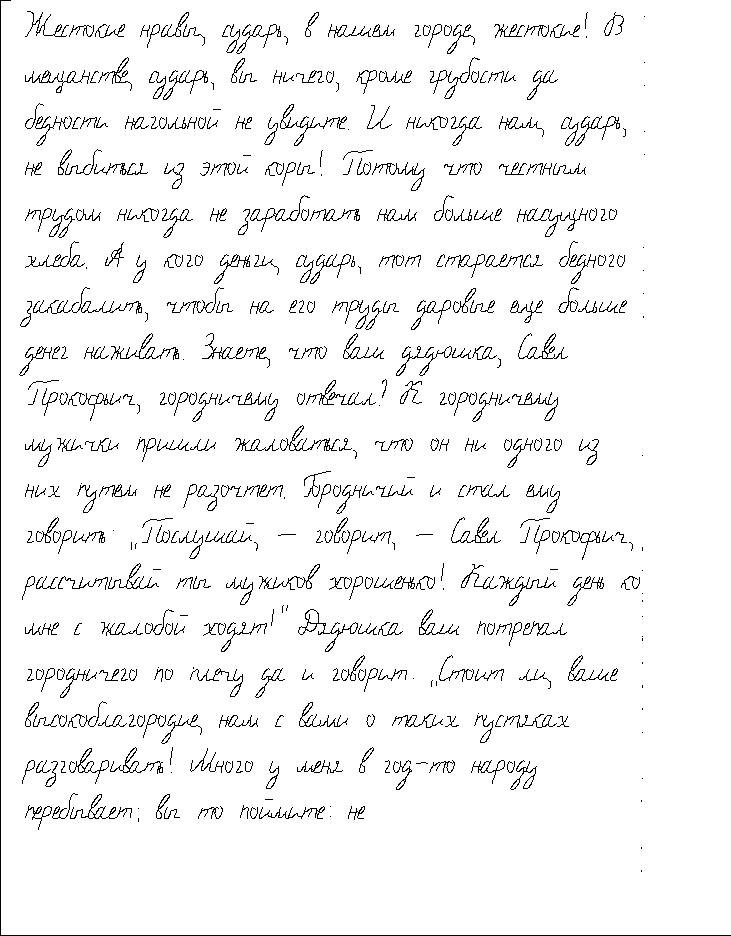 Жестокие нравы, сударь, в нашем городе, жестокие! В
мещанстве, сударь, вы ничего, кроме грубости да
бедности нагольной не увидите. И никогда нам, сударь,
не выбиться из этой коры! Потому что честным
трудом никогда не заработать нам больше насущного
хлеба. А у кого деньги, сударь, тот старается бедного
закабалить, чтобы на его труды даровые еще больше
денег наживать. Знаете, что ваш дядюшка, Савел
Прокофьич, городничему отвечал? К городничему
мужички пришли жаловаться, что он ни одного из
них путем не разочтет. Городничий и стал ему
говорить: „Послушай, — говорит, — Савел Прокофьич,
рассчитывай ты мужиков хорошенько! Каждый день ко
мне с жалобой ходят!" Дядюшка ваш потрепал
городничего по плечу да и говорит: „Стоит ли, ваше
высокоблагородие, нам с вами о таких пустяках
разговаривать! Много у меня в год-то народу
перебывает; вы то поймите: не